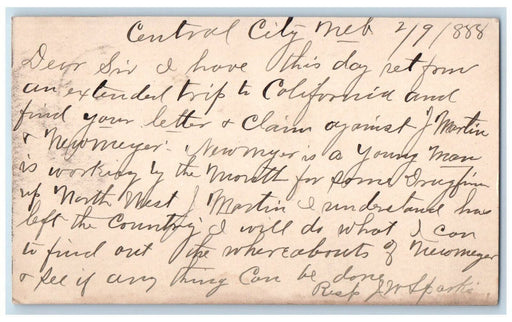 Central City Neb 2/9/1888
Dear Sir I have this day ret from
an extended trip to California and
find your letter & claim against J Martin
& Newmeyer. Newmyer is a young man
is working by the month for some
up North West J Martin I understand has
left the country I will do what I can
to find out the whereabouts of Newmeyer
& see if any thing can be done
Resp J W Sparks